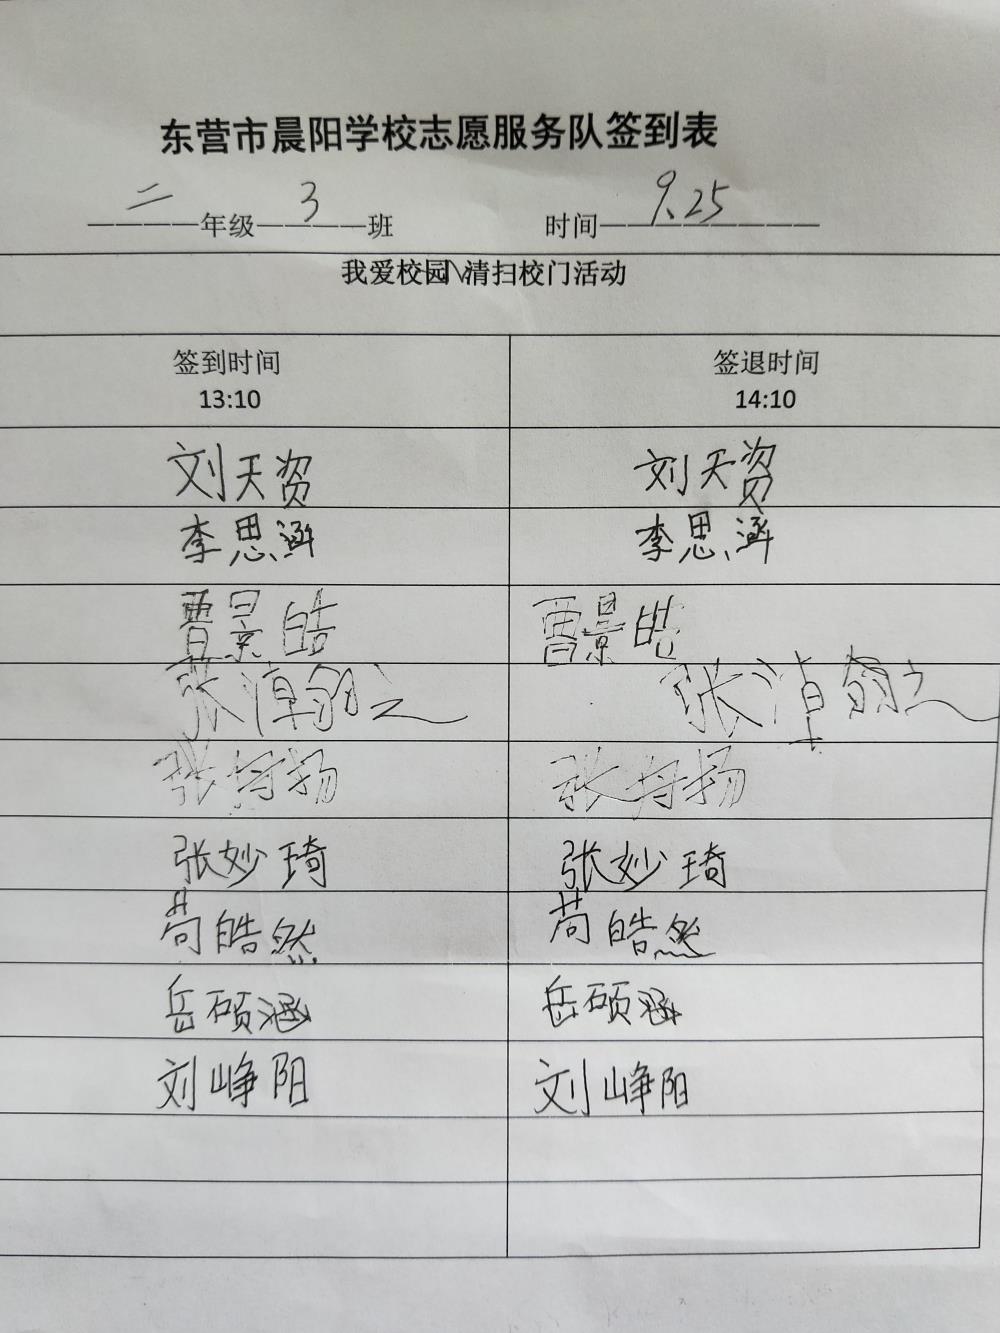 东营市晨阳学校志愿服务队签到表
二年级3班 时间9.25
我爱校园\/清扫校门活动
签到时间 签退时间
13:10 14:10
刘天资 刘天资
李思涵 李思涵
曹景皓 曹景皓
张淖翎之 张淖翎之
张 扬 张 扬
张妙琦 张妙琦
苟皓然 苟皓然
岳硕涵 岳硕涵
刘峥阳 刘峥阳